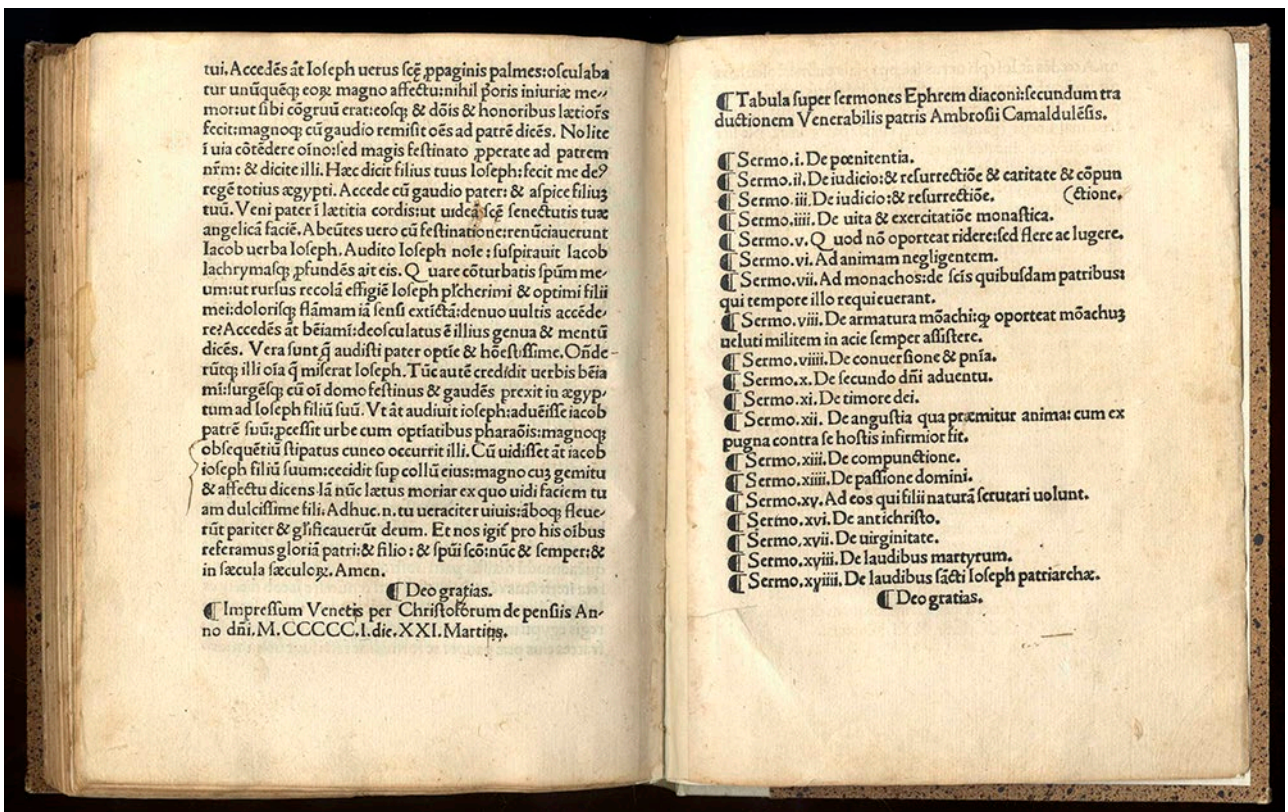 tui. Accedēs āt Ioseph uerus scē ꝓpaginis palmes: osculaba
tur unūquēq; eoꝝ magno affectu: nihil p̄oris iniuriæ me-
mor: ut sibi cōgruū erat: eosq; & dōis & honoribus lætiors
fecit: magnoq; cū gaudio remisit oēs ad patrē dicēs. Nolite
ī uia cōtēdere oīno: sed magis festinato ꝓperate ad patrem
nr̄m: & dicite illi. Hæc dicit filius tuus Ioseph: fecit me deꝰ
regē totius ægypti. Accede cū gaudio pater: & aspice filiuȝ
tuū. Veni pater ī lætitia cordis: ut uideā scē senectutis tuæ
angelicā faciē. Abeūtes uero cū festinatione: renūciauerunt
Iacob uerba Ioseph. Audito Ioseph noīe: suspirauit Iacob
lachrymasq; ꝓfundēs ait eis. Q uare cōturbatis spūm me-
um: ut rursus recolā effigiē Ioseph pl̄cherimi & optimi filii
mei: dolorisq; flāmam iā sensi extīctā: denuo uultis accēde-
re? Accedēs āt bēiamī: deosculatus ē illius genua & mentū
dicēs. Vera sunt q̄ audisti pater optīe & hōestissime. Onde-
rūtq; illi oīa q̄ miserat Ioseph. Tūc autē credidit uerbis bēia
mī: surgēsq; cū oī domo festinus & gaudēs prexit in ægyp-
tum ad Ioseph filiū suū. Vt āt audiuit ioseph: aduēisse iacob
patrē suū: ꝓcessit urbe cum optīatibus pharaōis: magnoq;
obsequētiū stipatus cuneo occurrit illi. Cū uidisset āt iacob
ioseph filiū suum: cecidit sup collū eius: magno cuȝ gemitu
& affectu dicens Iā nūc lætus moriar ex quo uidi faciem tu
am dulcissime fili. Adhuc.n.tu ueraciter uiuis: āboq; fleue-
rūt pariter & gl̄ificauerūt deum. Et nos igit̄ pro his oībus
referamus gloriā patri: & filio: & spūi scō: nūc & semper: &
in sæcula sæculoꝝ. Amen.
¶ Deo gratias.
¶ Impressum Venetis per Christoforum de pensiis An-
no dn̄i. M.CCCCC.I. die. XXI. Martius.
¶ Tabula super sermones Ephrem diaconi: secundum tra
ductionem Venerabilis patris Ambrosii Camaldulēsis.
¶ Sermo.i. De pœnitentia.
¶ Sermo.ii. De iudicio: & resurrectiōe & caritate & cōpun
¶ Sermo.iii. De iudicio: & resurrectiōe. (ctione.
¶ Sermo.iiii. De uita & exercitatiōe monastica.
¶ Sermo.v. Q uod nō oporteat ridere: sed flere ac lugere.
¶ Sermo.vi. Ad animam negligentem.
¶ Sermo.vii. Ad monachos: de scīs quibusdam patribus:
qui tempore illo requieuerant.
¶ Sermo.viii. De armatura mōachi: ꝙ oporteat mōachuȝ
ueluti militem in acie semper assistere.
¶ Sermo.viiii. De conuersione & pn̄ia.
¶ Sermo.x. De secundo dn̄i aduentu.
¶ Sermo.xi. De timore dei.
¶ Sermo.xii. De angustia qua præmitur anima: cum ex
pugna contra se hostis infirmior fit.
¶ Sermo.xiii. De compunctione.
¶ Sermo.xiiii. De passione domini.
¶ Sermo.xv. Ad eos qui filii naturā scrutari uolunt.
¶ Sermo.xvi. De antichristo.
¶ Sermo.xvii. De uirginitate.
¶ Sermo.xviii. De laudibus martyrum.
¶ Sermo.xviiii. De laudibus sācti Ioseph patriarchæ.
¶ Deo gratias.